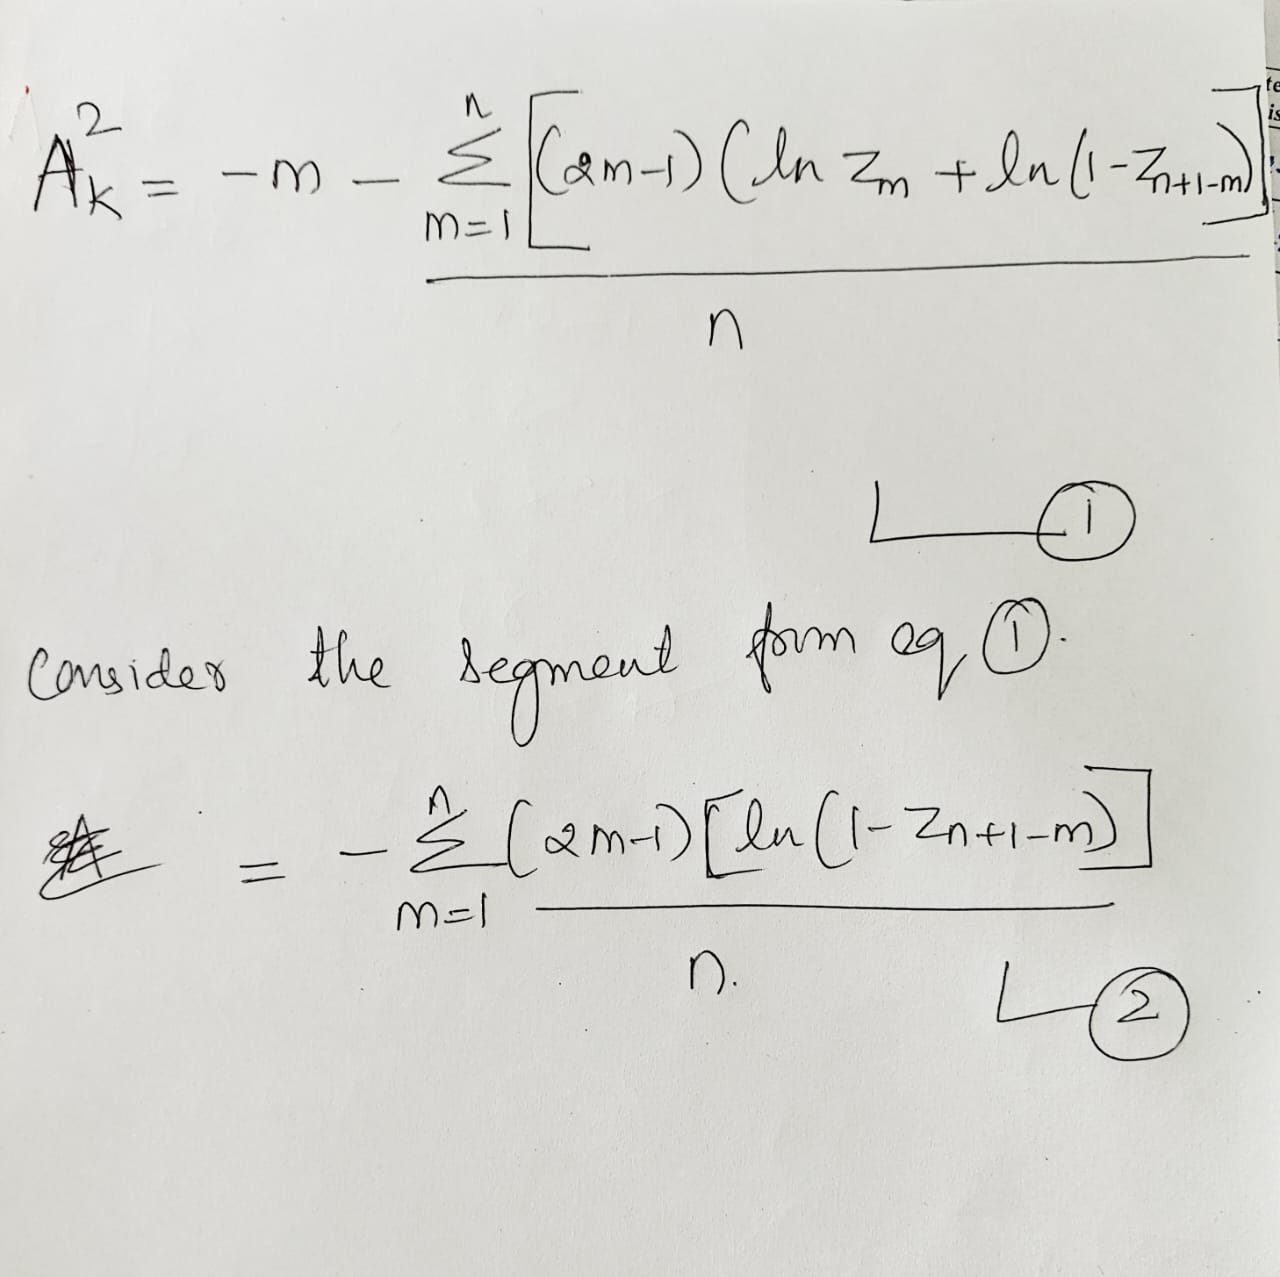 A_k^2 = -m - \frac{\sum_{m=1}^{n} [(2m-1)(ln Z_m + ln(1-Z_{n+1-m})]}{n}
1
Consider the segment form eq 1.
= -\sum_{m=1}^{n} \frac{(2m-1)[ln(1-Z_{n+1-m})]}{n.}
2
te
is